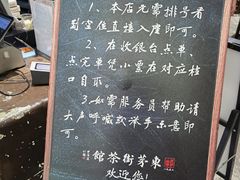 1、本店无需排号看
到空位直接入座即可。
2、在收银台点单，
点完单凭小票在对应档
口自取。
3、如需服务员帮助请
大声呼喊或举手示意即
可。
館茶街茶東
欢迎您！